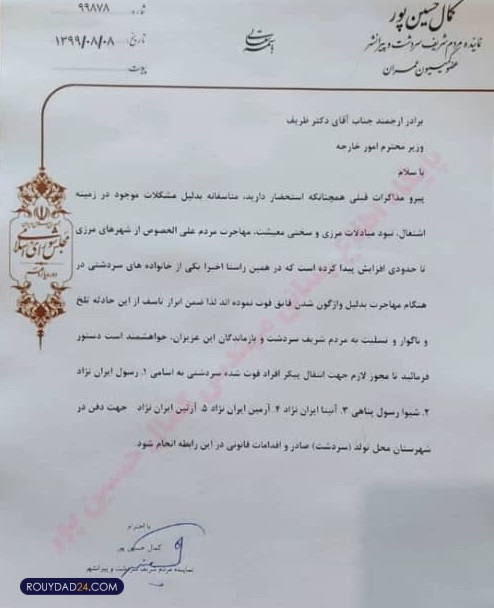 کمال حسین پور
نماینده مردم شریف سردشت و پیرانشهر
عضو کمیسیون عمران
باسمه تعالی
شماره ۹۹۸۷۸
تاریخ ۱۳۹۹/۰۸/۰۸
پیوست
مجلس شورای اسلامی
برادر ارجمند جناب آقای دکتر ظریف
وزیر محترم امور خارجه
با سلام
پیرو مذاکرات قبلی همچنانکه استحضار دارید، متاسفانه بدلیل مشکلات موجود در زمینه
اشتغال، نبود مبادلات مرزی و سختی معیشت، مهاجرت مردم علی الخصوص از شهرهای مرزی
تا حدودی افزایش پیدا کرده است که در همین راستا اخیرا یکی از خانواده های سردشتی در
هنگام مهاجرت بدلیل واژگون شدن قایق فوت نموده اند لذا ضمن ابراز تاسف از این حادثه تلخ
و ناگوار و تسلیت به مردم شریف سردشت و بازماندگان این عزیزان، خواهشمند است دستور
فرمائید تا مجوز لازم جهت انتقال پیکر افراد فوت شده سردشتی به اسامی ۱. رسول ایران نژاد
۲. شیوا رسول پناهی ۳. آنیتا ایران نژاد ۴. آرمین ایران نژاد ۵. آرتین ایران نژاد جهت دفن در
شهرستان محل تولد (سردشت) صادر و اقدامات قانونی در این رابطه انجام شود.
با احترام
کمال حسین پور
نماینده مردم شریف سردشت و پیرانشهر
پایگاه اطلاع رسانی مهندس کمال حسین پور
ROUYDAD24.COM